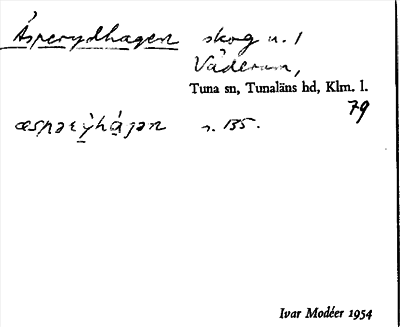 Äsperydhagen skog u. 1
Väderum,
Tuna sn, Tunaläns hd, Klm. l.
79
s. 135.
Ivar Modéer 1954